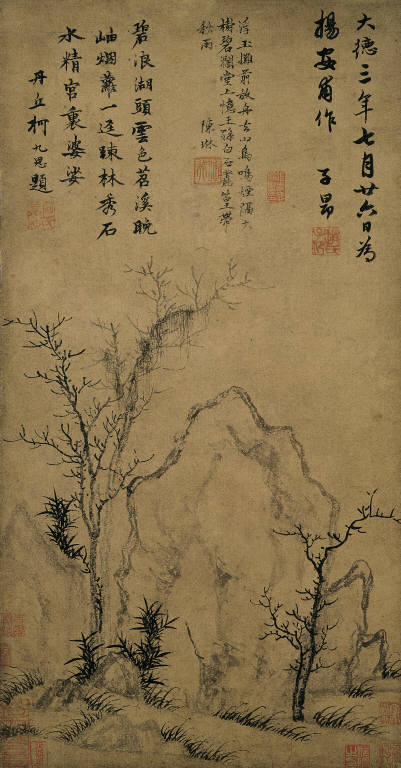 大德三年七月廿六日為
楊安甫作 子昂
浮玉灘前放舟去山鳥鳴煙隔大
樹碧瀾堂上憶王孫白石蒼筤帶
秋雨 陳琳
碧浪湖頭雲色苕溪晚
岫烟蘿一逕踈林秀石
水精宮裏婆娑
丹丘柯九思題